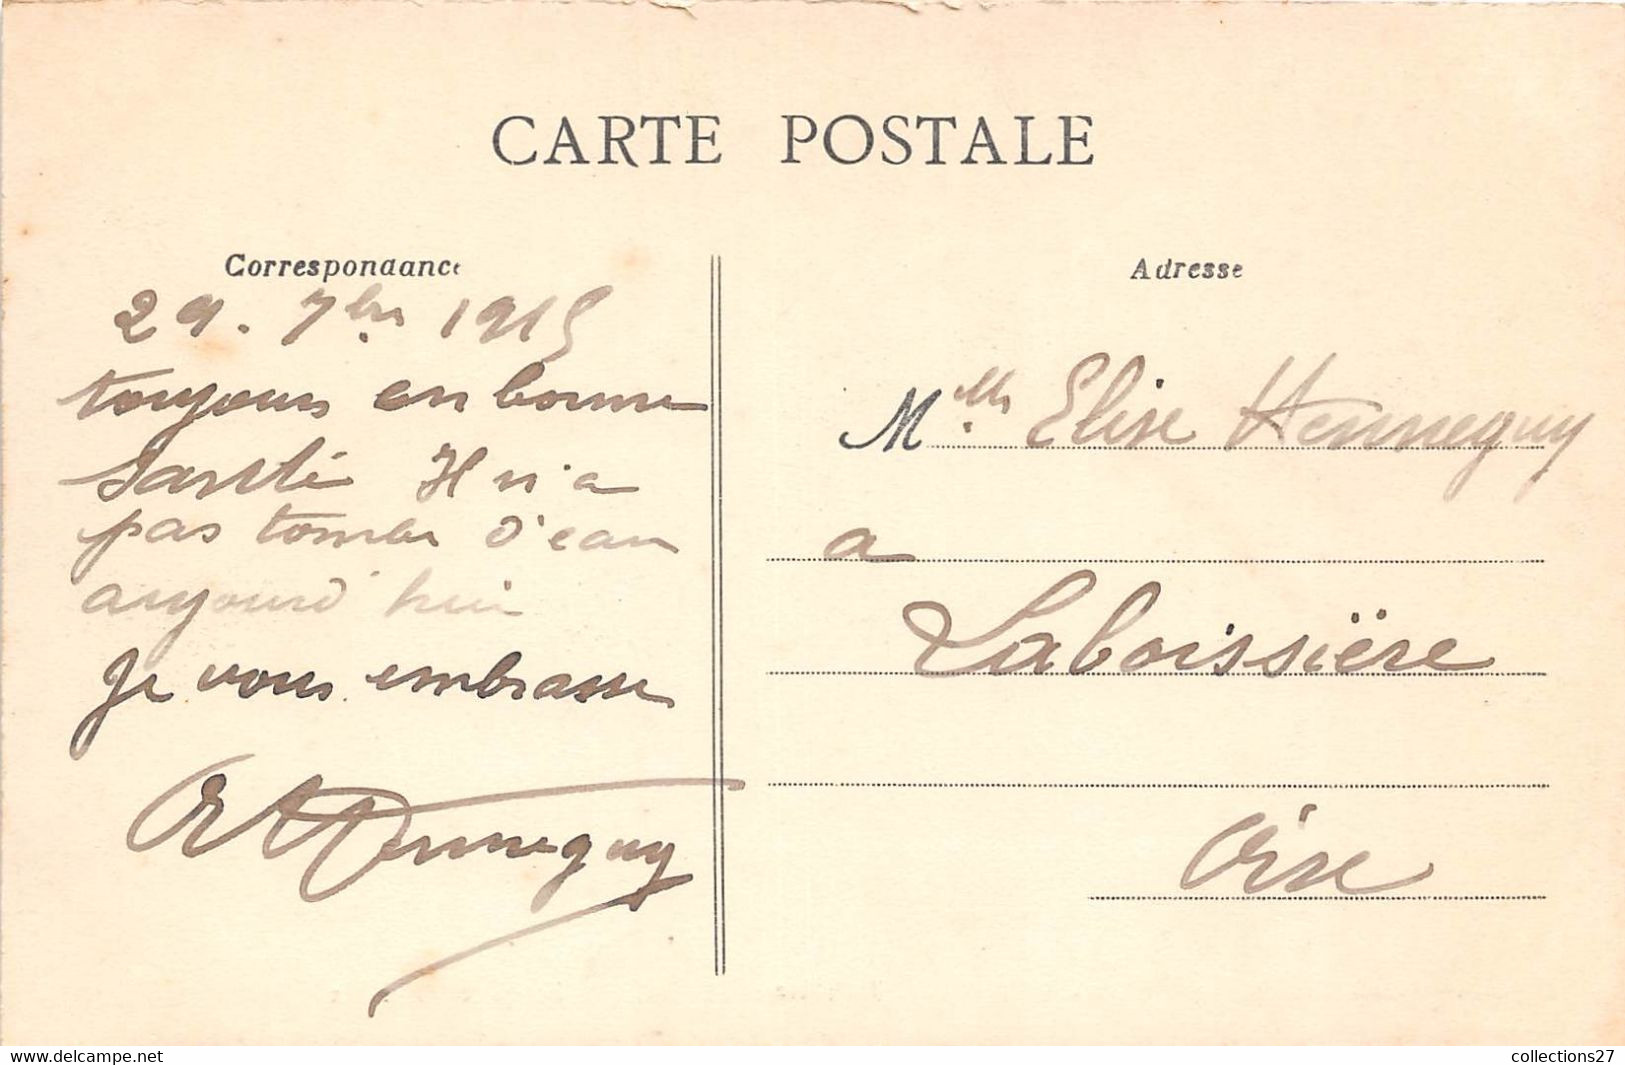 CARTE POSTALE
Correspondance
29. 7bre 1915
toujours en bonne
santé Il n'a
pas tombé d'eau
aujourd'hui
Je vous embrasse
Henneguy
Adresse
Melle Elise Henneguy
a
Laboissière
Oise
collections27